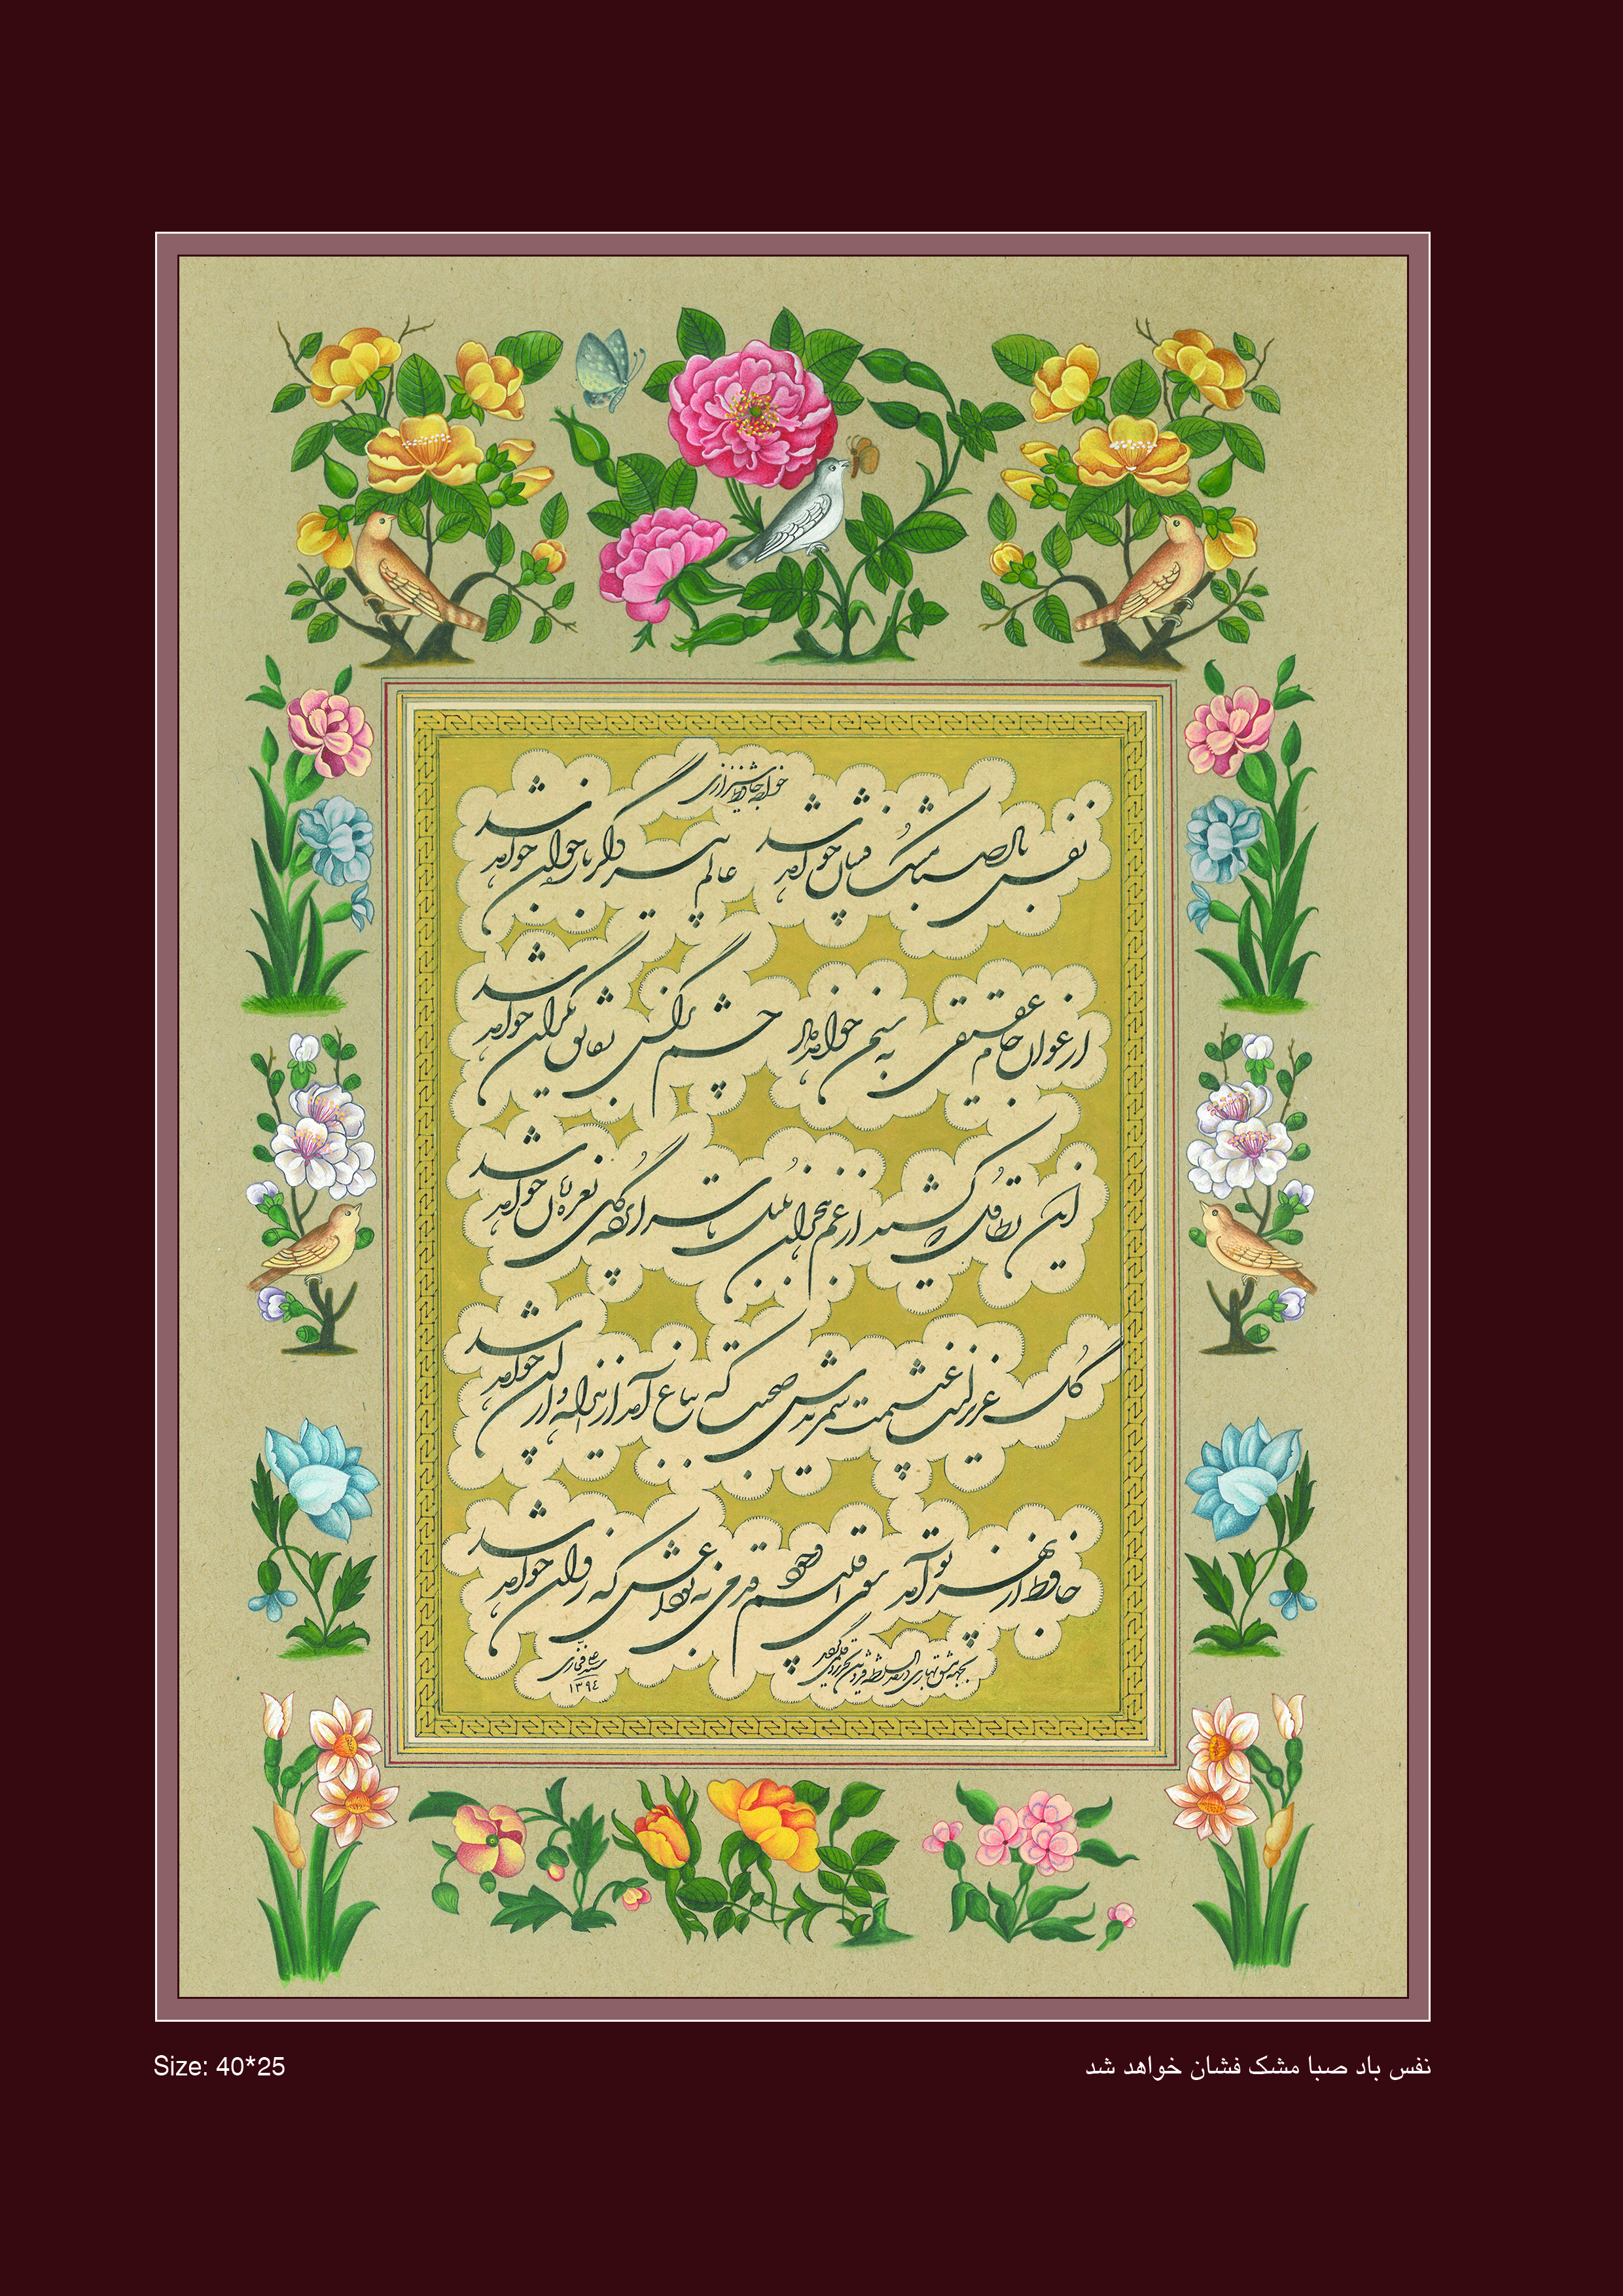 خواجه حافظ شیرازی
نفس باد صبا مشک فشان خواهد شد عالم پیر دگر باره جوان خواهد شد
ارغوان جام عقیقی به سمن خواهد داد چشم نرگس به شقایق نگران خواهد شد
این تطاول که کشید از غم هجران بلبل تا سراپرده گل نعره زنان خواهد شد
گل عزیز است غنیمت شمریدش صحبت که بباغ آمد ازین راه و از آن خواهد شد
حافظ از بهر تو آمد سوی اقلیم وجود قدمی نه به وداعش که روان خواهد شد
سید علی فخاری
۱۳۹۴
Size: 40*25
نفس باد صبا مشک فشان خواهد شد